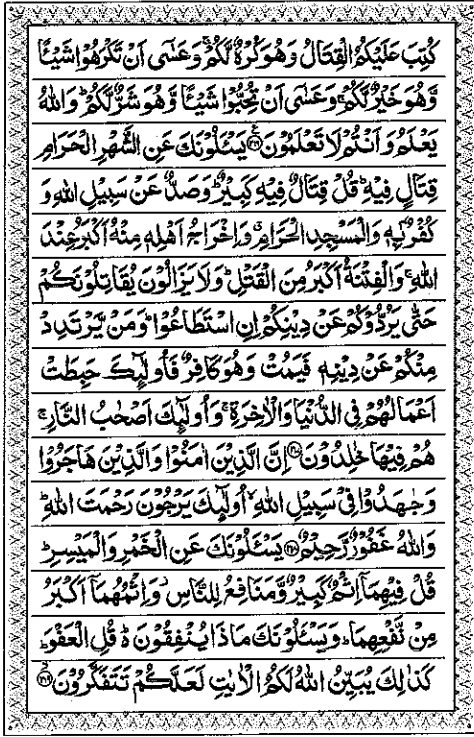 كُتِبَ عَلَيۡكُمُ الۡقِتَالُ وَهُوَ كُرۡهٌ لَّكُمۡ‌ۚ وَعَسٰٓى اَنۡ تَكۡرَهُوۡا شَيۡـًٔا
وَّهُوَ خَيۡرٌ لَّكُمۡ‌ۚ وَعَسٰٓى اَنۡ تُحِبُّوۡا شَيۡـًٔا وَّهُوَ شَرٌّ لَّكُمۡؕ وَاللّٰهُ
يَعۡلَمُ وَاَنۡـتُمۡ لَا تَعۡلَمُوۡنَ‏ ﴿۲۱۶﴾ يَسۡـَٔلُوۡنَكَ عَنِ الشَّهۡرِ الۡحَرَامِ
قِتَالٍ فِيۡهِ‌ؕ قُلۡ قِتَالٌ فِيۡهِ كَبِيۡرٌ ‌ؕ وَصَدٌّ عَنۡ سَبِيۡلِ اللّٰهِ وَ
کُفۡرٌۢ بِهٖ وَالۡمَسۡجِدِ الۡحَـرَامِ وَاِخۡرَاجُ اَهۡلِهٖ مِنۡهُ اَكۡبَرُ عِنۡدَ
اللّٰهِ ‌‌ۚ وَالۡفِتۡنَةُ اَکۡبَرُ مِنَ الۡقَتۡلِ‌ؕ وَلَا يَزَالُوۡنَ يُقَاتِلُوۡنَكُمۡ
حَتّٰى يَرُدُّوۡكُمۡ عَنۡ دِيۡـنِکُمۡ اِنِ اسۡتَطَاعُوۡا ‌ؕ وَمَنۡ يَّرۡتَدِدۡ
مِنۡكُمۡ عَنۡ دِيۡـنِهٖ فَيَمُتۡ وَهُوَ کَافِرٌ فَاُولٰٓٮِٕكَ حَبِطَتۡ
اَعۡمَالُهُمۡ فِى الدُّنۡيَا وَالۡاٰخِرَةِ ‌‌ۚ وَاُولٰٓٮِٕكَ اَصۡحٰبُ النَّارِ‌‌ۚ
هُمۡ فِيۡهَا خٰلِدُوۡنَ‏ ﴿۲۱۷﴾ اِنَّ الَّذِيۡنَ اٰمَنُوۡا وَالَّذِيۡنَ هَاجَرُوۡا
وَجٰهَدُوۡا فِىۡ سَبِيۡلِ اللّٰهِۙ اُولٰٓٮِٕكَ يَرۡجُوۡنَ رَحۡمَتَ اللّٰهِؕ
وَاللّٰهُ غَفُوۡرٌ رَّحِيۡمٌ‏ ﴿۲۱۸﴾ يَسۡـَٔلُوۡنَكَ عَنِ الۡخَمۡرِ وَالۡمَيۡسِرِ‌ؕ
قُلۡ فِيۡهِمَآ اِثۡمٌ کَبِيۡرٌ وَّمَنَافِعُ لِلنَّاسِ وَاِثۡمُهُمَآ اَکۡبَرُ
مِنۡ نَّفۡعِهِمَا ؕ وَيَسۡـَٔلُوۡنَكَ مَاذَا يُنۡفِقُوۡنَ ؕ قُلِ الۡعَفۡوَ‌ؕ
كَذٰلِكَ يُبَيِّنُ اللّٰهُ لَـكُمُ الۡاٰيٰتِ لَعَلَّکُمۡ تَتَفَكَّرُوۡنَۙ‏ ﴿۲۱۹﴾